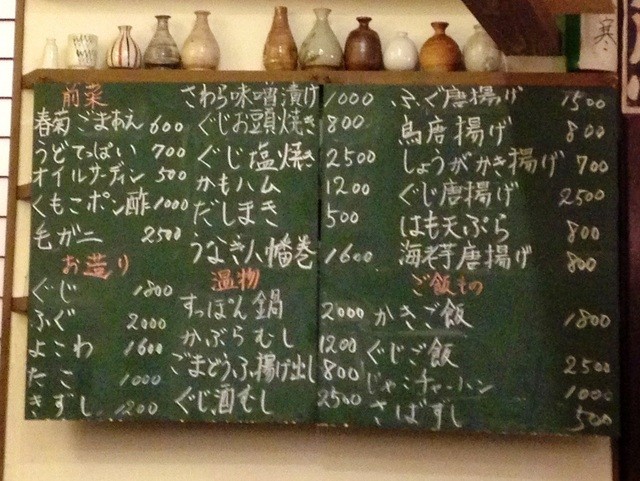 前菜
春菊ごまあえ 600
うどてっぱい 700
オイルサーディン 500
くもこポン酢 1000
毛ガニ 2500
お造り
ぐじ 1800
ふぐ 2000
よこわ 1600
たこ 1000
きずし 1200
さわら味噌漬け 1000
ぐじお頭焼き 800
ぐじ塩焼き 2500
かもハム 1200
だしまき 500
うなぎ八幡巻 1600
温物
すっぽん鍋 2000
かぶらむし 1200
ごまどうふ揚げ出し 800
ぐじ酒むし 2500
ふぐ唐揚げ 1500
鳥唐揚げ 800
しょうがかき揚げ 700
ぐじ唐揚げ 2500
はも天ぷら 800
海老芋唐揚げ 800
ご飯もの
かきご飯 1800
ぐじご飯 2500
じゃこチャーハン 1000
さばずし 500
寒